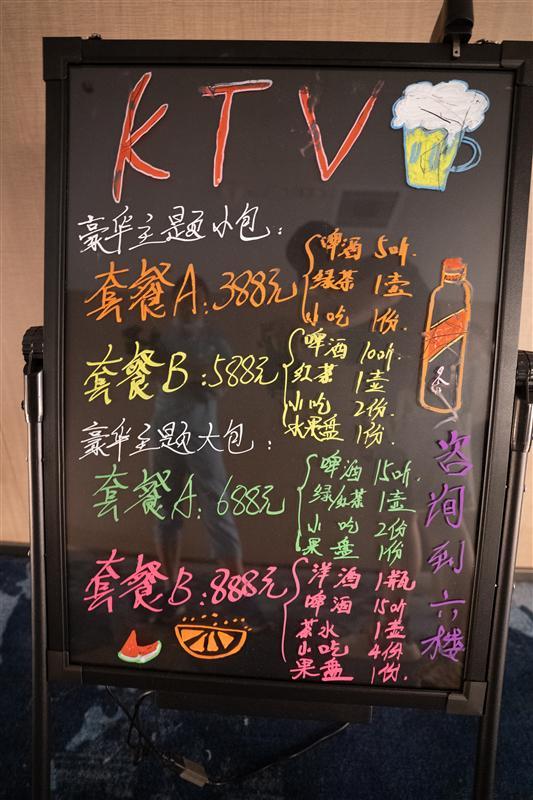 KTV
豪华主题小包：
套餐A：388元
啤酒 5听.
绿茶 1壶
小吃 1份.
套餐B：588元
啤酒 10听.
红茶 1壶
小吃 2份.
水果盘 1份.
豪华主题大包：
套餐A：688元
啤酒 15听.
绿/红茶 1壶
小吃 2份
果盘 1份
套餐B：888元
洋酒 1瓶
啤酒 15听
茶水 1壶
小吃 4份
果盘 1份.
咨询到六楼